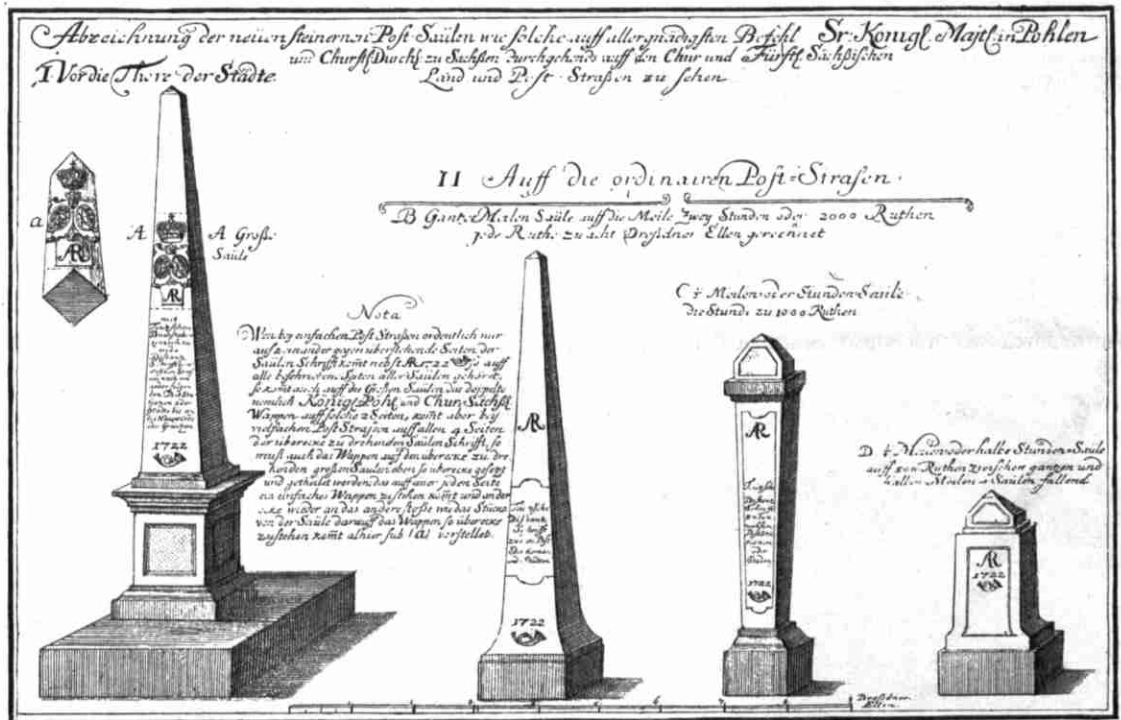 Abzeichnung der neuen steinernen Post-Säulen wie solche auff allergnädigsten Befehl Sr: Königl. Majtt. in Pohlen
und Churfl. Durchl. zu Sachßen durchgehends auff den Chur und Fürstl. Sächßischen
Land und Post Straßen zu sehen.
I. Vor die Thore der Städte.
a
A
A Große
Säule
AR
AR
mit
1722
II Auff die ordinairen Post-Strasen.
B Gantze Meilen Säule auff die Meile Zwey Stunden oder 2000 Ruthen
jede Ruthe zu acht Dreßdner Ellen gerechnet
Nota
Wen bey einfachen Post Straßen ordentlich nur
auf zwey einander gegen überstehende Seiten der
Säulen Schrifft komt nebst AR 1722 auff
alle beschriebene Seiten aller Säulen gehöret,
so komt auch auff die Großen Säulen das doppelte
nemlich Königl. Pohl. und Chur Sächßl.
Wappen auff solche 2 Seiten, komt aber bey
vielfachen Post Strasen auff allen 4 Seiten
der übereck zu drehenden Säulen Schrifft, so
muß auch das Wappen auf den übereck zu dre-
henden großen Säulen eben so übereck gesetzt
und getheilet werden, das auff einer jeden Seite
ein einfaches Wappen zu stehen komt und an der
ecke wieder an das andere stoße wie das Stücke
von der Säule darauff das Wappen so übereck
zustehen komt alhier sub (a) vorstellet.
AR
1722
C ½ Meilen oder Stunden Säule
die Stunde zu 1000 Ruthen
AR
1722
D ¼ Meilen oder halbe Stunden Säule
auff 500 Ruthen zwischen gantzen und
halben Meilen Säulen fallend
AR
1722
Dreßdner
Ellen